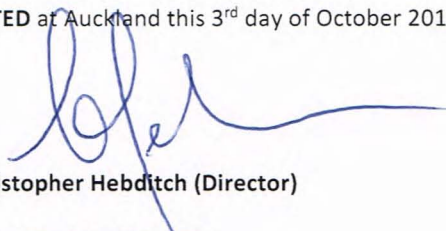 TED at Auckland this 3rd day of October 201
stopher Hebditch (Director)